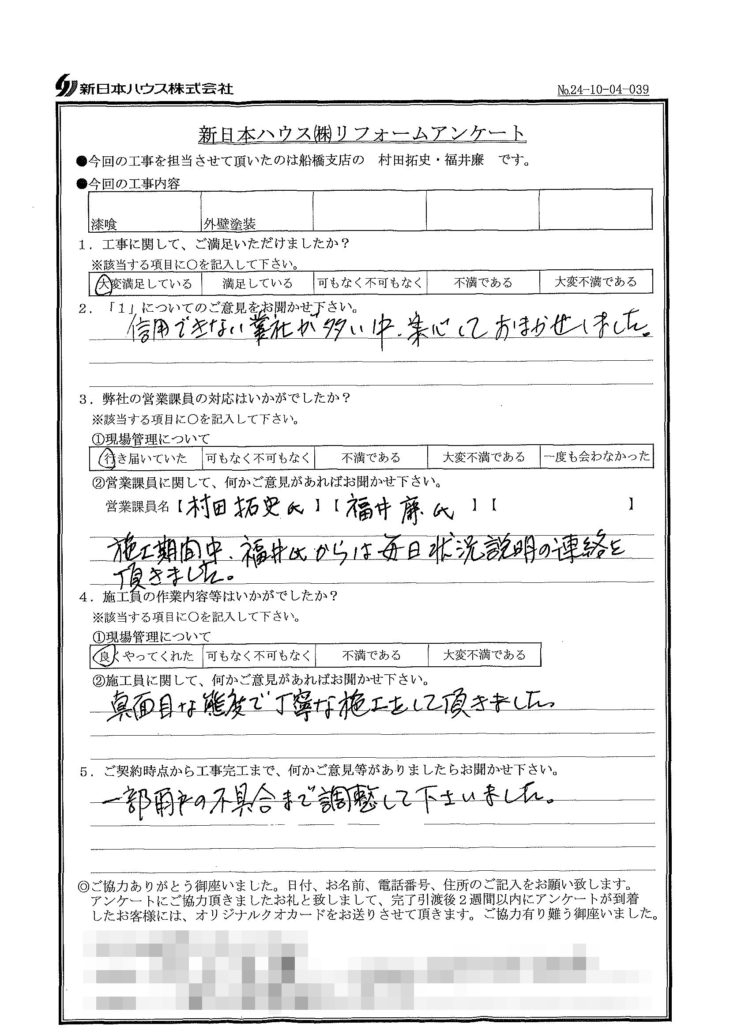 新日本ハウス株式会社
No.24-10-04-039
新日本ハウス㈱リフォームアンケート
●今回の工事を担当させて頂いたのは船橋支店の 村田拓史・福井廉 です。
●今回の工事内容
漆喰 外壁塗装
1．工事に関して、ご満足いただけましたか？
※該当する項目に○を記入して下さい。
大変満足している 満足している 可もなく不可もなく 不満である 大変不満である
2．「1」についてのご意見をお聞かせ下さい。
信用できない業社が多い中、安心しておまかせしました。
3．弊社の営業課員の対応はいかがでしたか？
※該当する項目に○を記入して下さい。
①現場管理について
行き届いていた 可もなく不可もなく 不満である 大変不満である 一度も会わなかった
②営業課員に関して、何かご意見があればお聞かせ下さい。
営業課員名【村田拓史氏】【福井廉氏】【 】
施工期間中、福井氏からは毎日状況説明の連絡を
頂きました。
4．施工員の作業内容等はいかがでしたか？
※該当する項目に○を記入して下さい。
①現場管理について
良くやってくれた 可もなく不可もなく 不満である 大変不満である
②施工員に関して、何かご意見があればお聞かせ下さい。
真面目な態度で丁寧な施工をして頂きました。
5．ご契約時点から工事完工まで、何かご意見等がありましたらお聞かせ下さい。
一部雨戸の不具合まで調整して下さいました。
◎ご協力ありがとう御座いました。日付、お名前、電話番号、住所のご記入をお願い致します。
アンケートにご協力頂きましたお礼と致しまして、完了引渡後2週間以内にアンケートが到着
したお客様には、オリジナルクオカードをお送りさせて頂きます。ご協力有り難う御座いました。